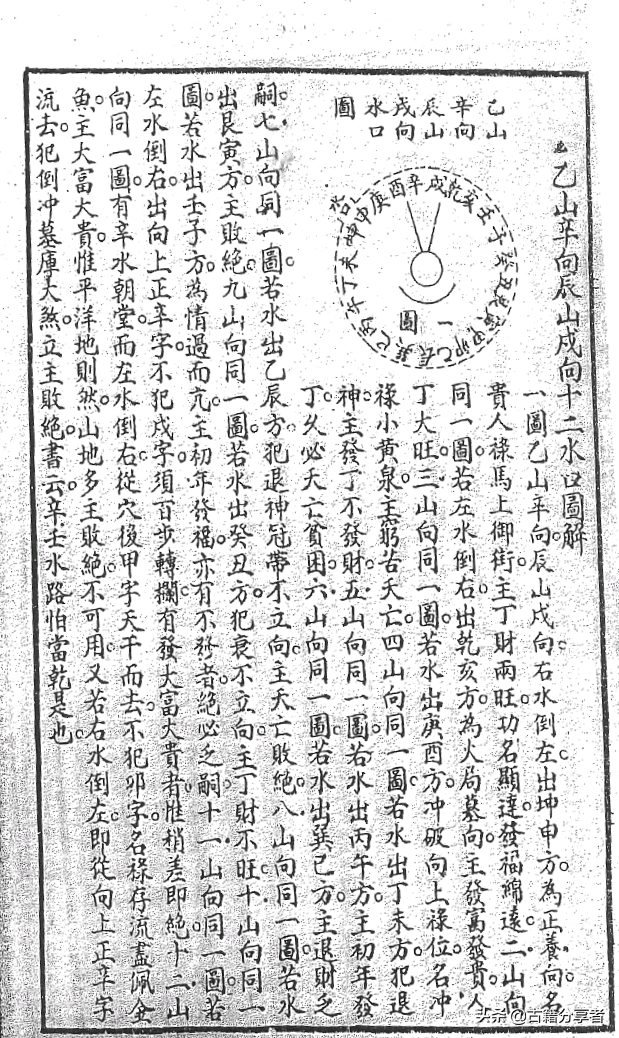 乙山辛向辰山戌向十二水口圖解
乙山
辛向
辰山
戌向
水口
圖
戌乾亥壬子癸丑艮寅甲卯乙辰巽巳丙午丁未坤申庚酉辛
一圖
一圖乙山辛向。辰山戌向。右水倒左。出坤申方。為正養向。名
貴人祿馬上御街。主丁財兩旺。功名顯達。發福綿遠。二山向
同一圖。若左水倒右。出乾亥方。為火局墓向。主發富發貴。人
丁大旺。三山向同一圖。若水出庚酉方。冲破向上祿位。名冲
祿小黃泉。主窮苦夭亡。四山向同一圖。若水出丁未方。犯退
神。主發丁不發財。五山向同一圖。若水出丙午方。主初年發
丁。久必夭亡貧困。六山向同一圖。若水出巽巳方。主退財乏
嗣。七山向同一圖。若水出乙辰方。犯退神冠帶不立向。主夭亡敗絶。八山向同一圖。若水
出艮寅方。主敗絶。九山向同一圖。若水出癸丑方。犯衰不立向。主丁財不旺。十山向同一
圖。若水出壬子方。為情過而亢。主初年發福。亦有不發者。絕必乏嗣。十一山向同一圖。若
左水倒右。出向上正辛字。不犯戌字。須百步轉攔。有發大富大貴者。惟稍差即絕。十二山
向同一圖。有辛水朝堂。而左水倒右。從穴後甲字天干而去。不犯卯字。名祿存流盡佩金
魚。主大富大貴。惟平洋地則然。山地多主敗絕。不可用。又若右水倒左。即從向上正辛字
流去。犯倒冲墓庫大煞。立主敗絕。書云。辛壬水路怕當乾是也。
头条@古籍分享者